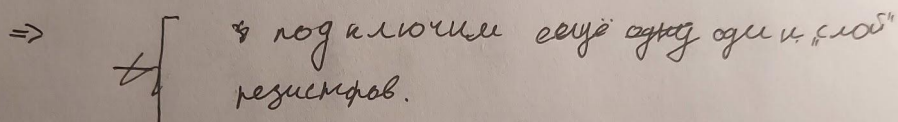 ⇒ подключим ещё один „слой“
резисторов.